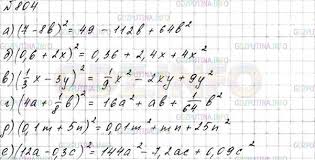 №804
а) (7-8b)² = 49 - 112b + 64b²
б) (0,6 + 2x)² = 0,36 + 2,4x + 4x²
в) (1/3 x - 3y)² = 1/9 x² - 2xy + 9y²
г) (4a + 1/8 b)² = 16a² + ab + 1/64 b²
д) (0,1m + 5n)² = 0,01m² + mn + 25n²
е) (12a - 0,3c)² = 144a² - 7,2ac + 0,09c²